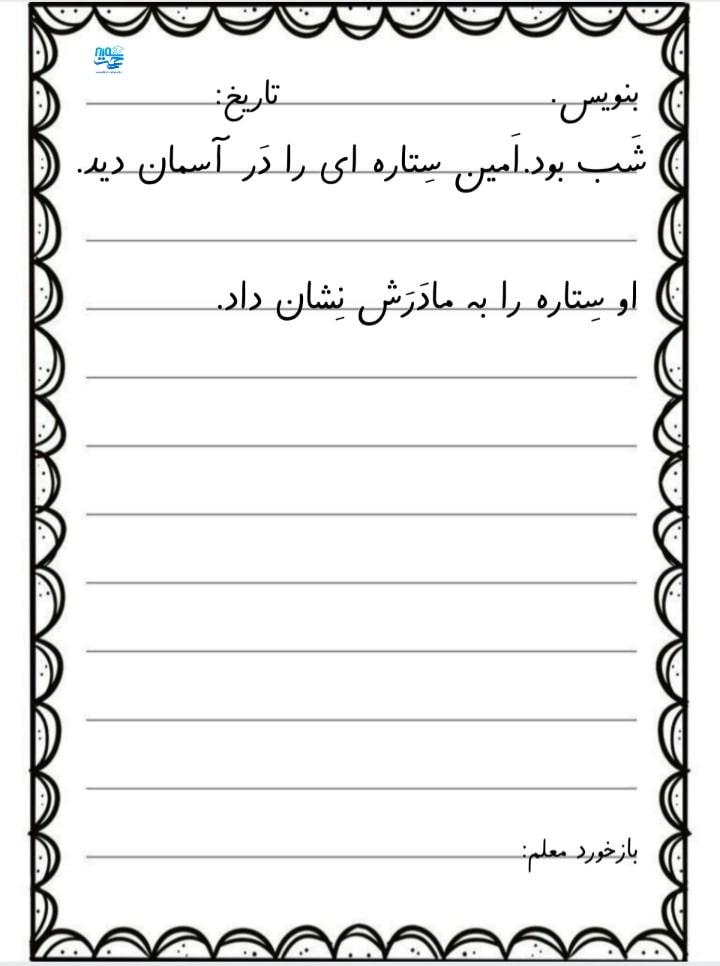 بنویس. تاریخ:
شَب بود.اَمین سِتاره ای را دَر آسمان دید.
او سِتاره را به مادَرَش نِشان داد.
بازخورد معلم: